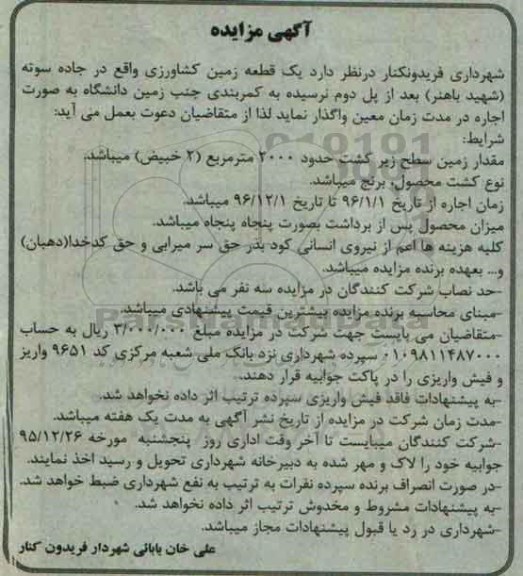 آگهی مزایده
شهرداری فریدونکنار درنظر دارد یک قطعه زمین کشاورزی واقع در جاده سوته
(شهید باهنر) بعد از پل دوم نرسیده به کمربندی جنب زمین دانشگاه به صورت
اجاره در مدت زمان معین واگذار نماید لذا از متقاضیان دعوت بعمل می آید:
شرایط:
مقدار زمین سطح زیر کشت حدود ۲۰۰۰ مترمربع (۲ خبیض) میباشد.
نوع کشت محصول، برنج میباشد.
زمان اجاره از تاریخ ۹۶/۱/۱ تا تاریخ ۹۶/۱۲/۱ میباشد.
میزان محصول پس از برداشت بصورت پنجاه پنجاه میباشد.
کلیه هزینه ها اعم از نیروی انسانی کود بذر حق سر میرابی و حق کدخدا(دهبان)
و... بعهده برنده مزایده میباشد.
-حد نصاب شرکت کنندگان در مزایده سه نفر می باشد.
-مبنای محاسبه برنده مزایده بیشترین قیمت پیشنهادی میباشد
-متقاضیان می بایست جهت شرکت در مزایده مبلغ ۳/۰۰۰/۰۰۰ ریال به حساب
۰۱۰۹۸۱۱۴۸۷۰۰۰ سپرده شهرداری نزد بانک ملی شعبه مرکزی کد ۹۶۵۱ واریز
و فیش واریزی را در پاکت جوابیه قرار دهند.
-به پیشنهادات فاقد فیش واریزی سپرده ترتیب اثر داده نخواهد شد.
-مدت زمان شرکت در مزایده از تاریخ نشر آگهی به مدت یک هفته میباشد.
-شرکت کنندگان میبایست تا آخر وقت اداری روز پنجشنبه مورخه ۹۵/۱۲/۲۶
جوابیه خود را لاک و مهر شده به دبیرخانه شهرداری تحویل و رسید اخذ نمایند.
-در صورت انصراف برنده سپرده نفرات به ترتیب به نفع شهرداری ضبط خواهد شد.
-به پیشنهادات مشروط و مخدوش ترتیب اثر داده نخواهد شد.
-شهرداری در رد یا قبول پیشنهادات مجاز میباشد.
علی خان بابائی شهردار فریدون کنار